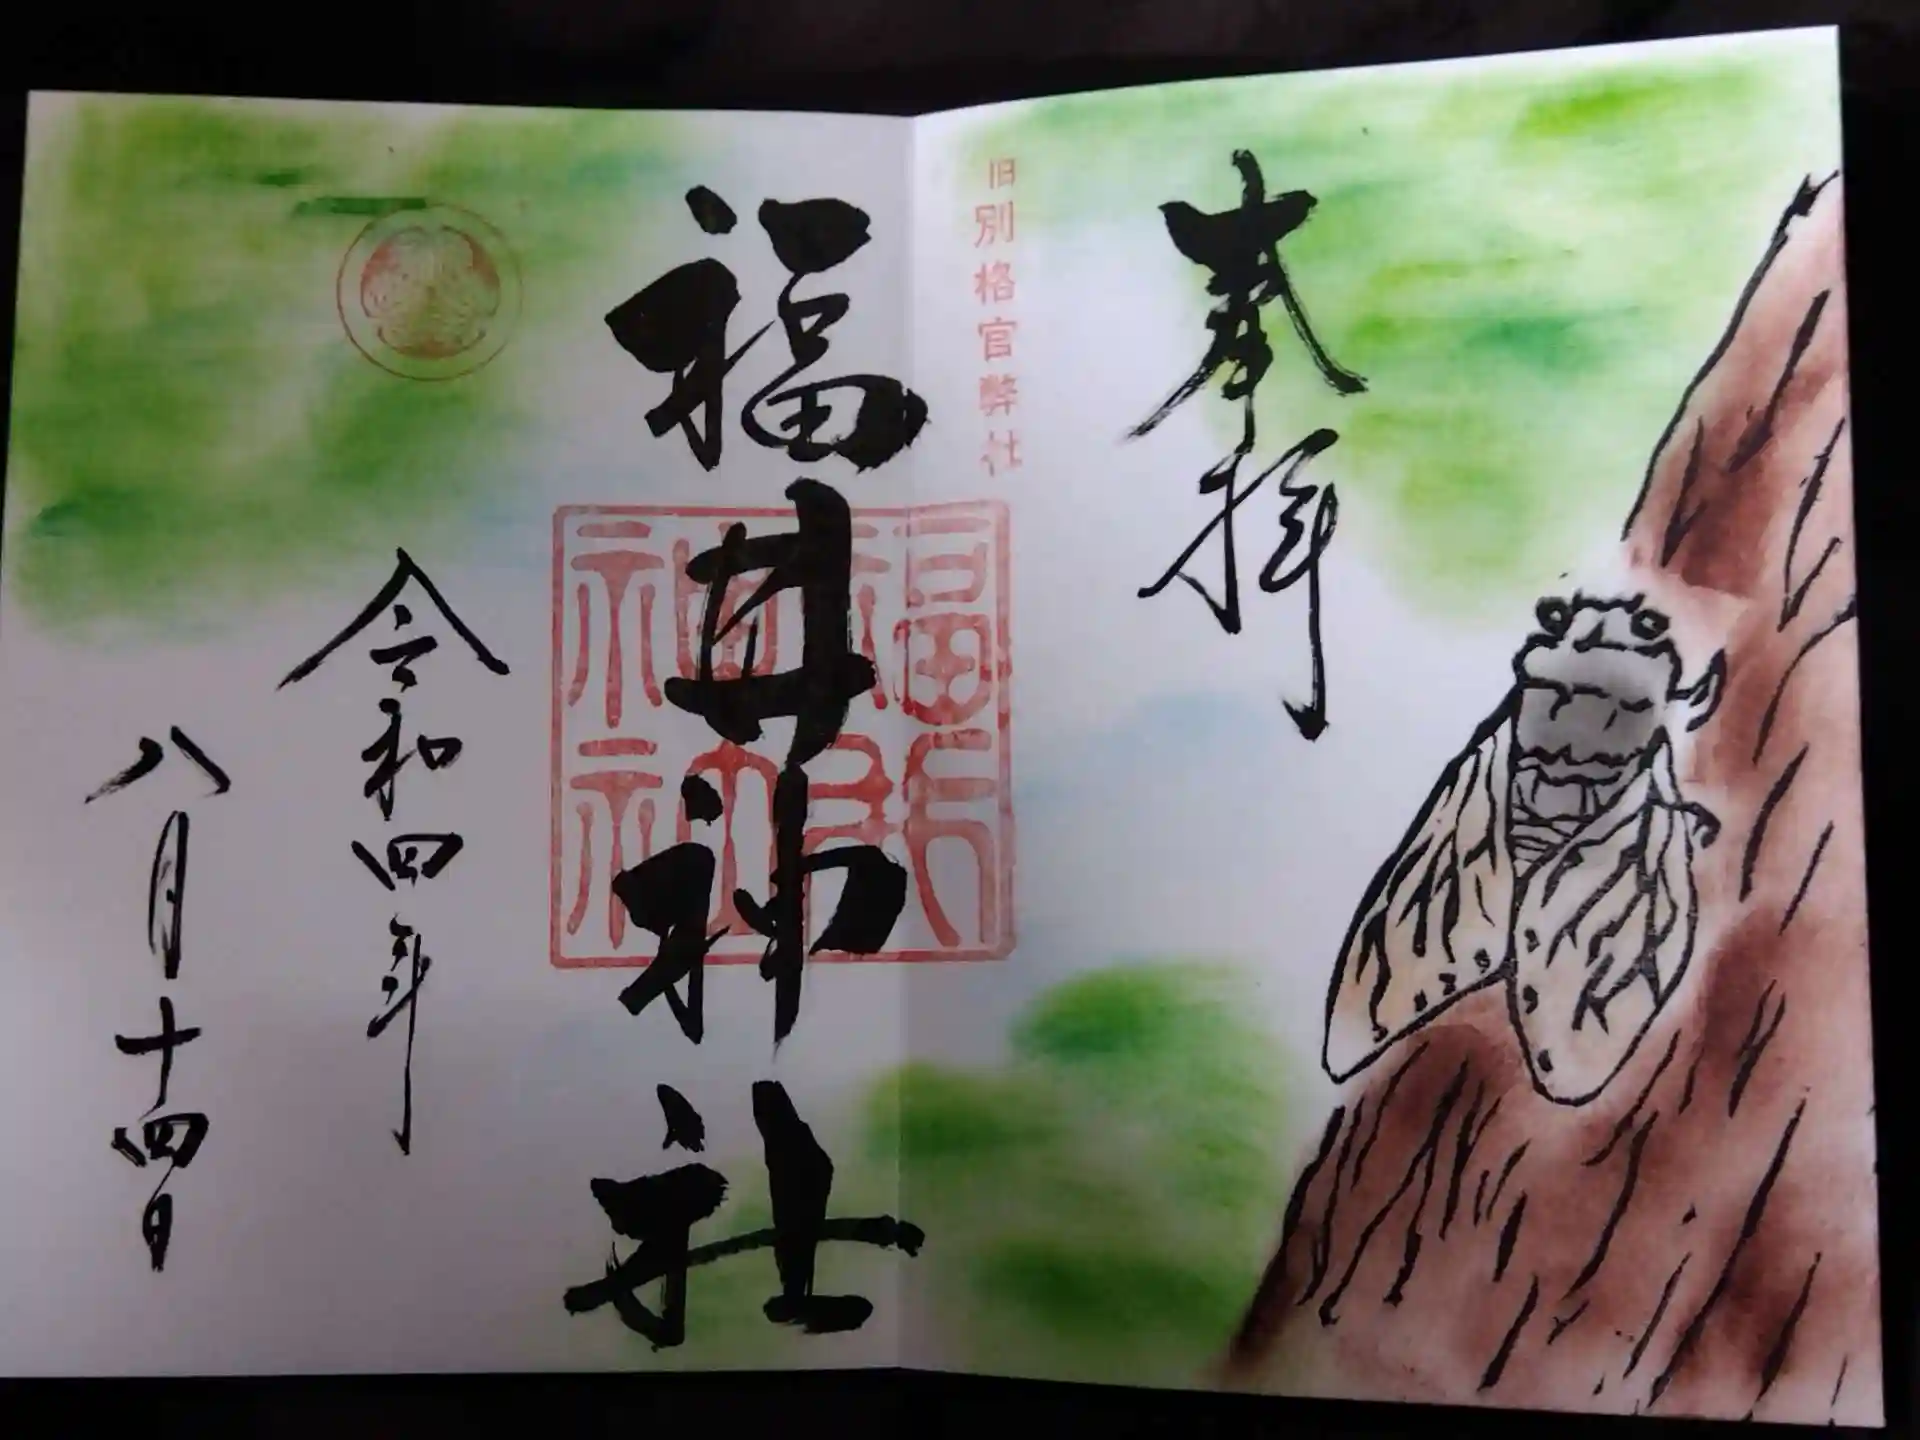 奉拝
旧別格官幣社
福井神社
福井神社
令和四年
八月十四日